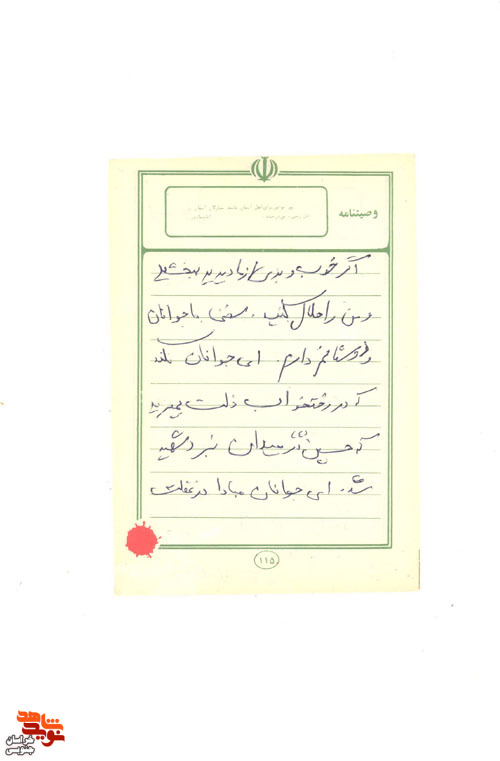 وصیتنامه
اگر خوب و بدی از ما دیدید ببخشید
و من را حلال کنید. سخنی با جوانان
و دوستانم دارم. ای جوانان نکند
که در رختخواب ذلت بمیرید
که حسین (ع) در میدان نبرد شهید
شد. ای جوانان مبادا در غفلت
۱۱۵
نوید شاهد
خراسان
جنوبی